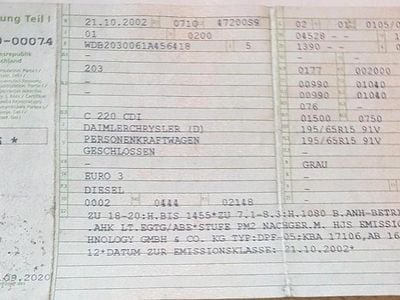 ung Teil I
0-00074
21.10.2002 0710 47200S9 02 01 0105/0
01 0200 04528 - -
WDB2030061A456418 5 1390 - -
-
203 0177 002000
- 00990 01040
- 00990 01040
076 -
C 220 CDI 01500 0750
DAIMLERCHRYSLER (D) 195/65R15 91V
PERSONENKRAFTWAGEN 195/65R15 91V
GESCHLOSSEN -
- GRAU
EURO 3 -
DIESEL -
0002 0444 02148
ZU 18-20:H.BIS 1455*ZU 7.1-8.3:H.1080 B.ANH-BETRI
.AHK LT.EGTG/ABE*STUFE PM2 NACHGER.M. HJS EMISSI
HNOLOGY GMBH & CO. KG TYP:DPF-05;KBA 17106,AB 16
12*DATUM ZUR EMISSIONSKLASSE: 21.10.2002*
.09.2020